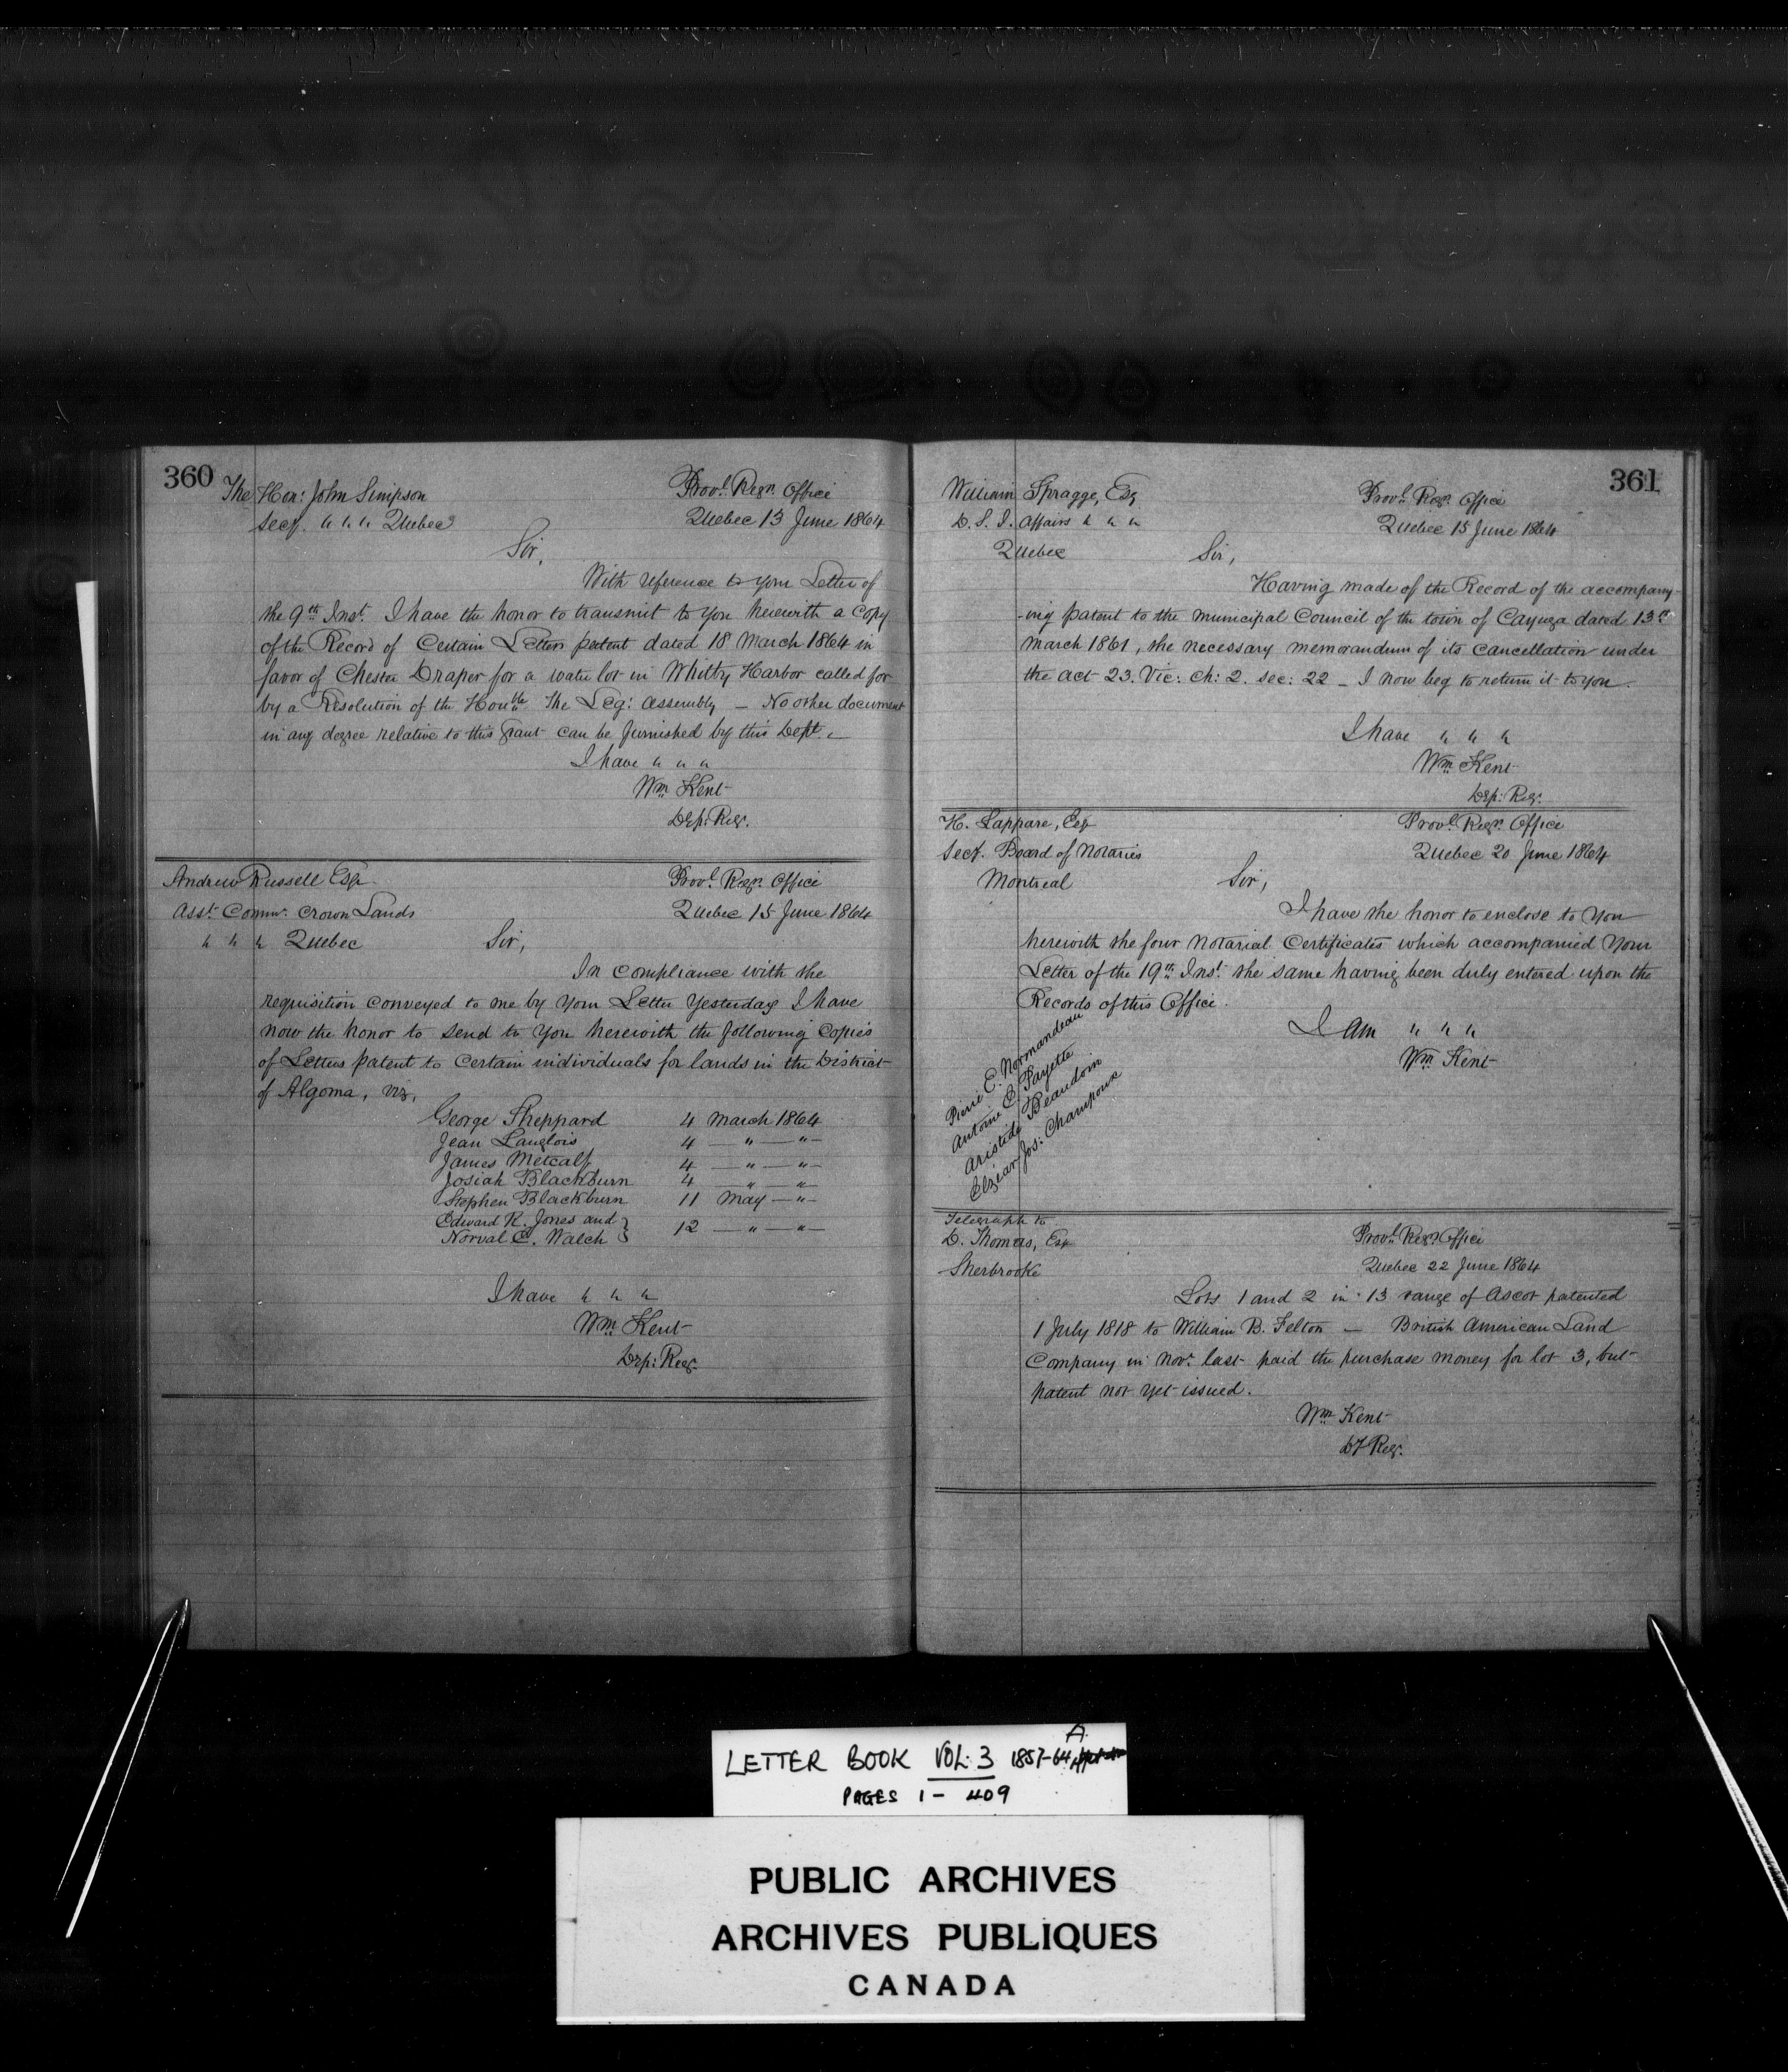 360
The Hon: John Simpson
Secy. " " " Quebec
Provl. Regr. Office
Quebec 13 June 1864
Sir,
With reference to your Letter of
the 9th Inst. I have the honor to transmit to you herewith a Copy
of the Record of Certain Letters patent dated 18 March 1864 in
favor of Chester Draper for a water lot in Whitby Harbor called for
by a Resolution of the Honble. The Leg: Assembly — No other document
in any degree relative to this Grant can be furnished by this Dept. —
I have " " "
Wm. Kent
Dep: Regr.
Andrew Russell Esqr
Asst. Commr. Crown Lands
" " " Quebec
Provl. Regr. Office
Quebec 15 June 1864
Sir,
In compliance with the
requisition conveyed to me by your Letter Yesterday I have
now the honor to send to you herewith the following Copies
of Letters patent to certain individuals for lands in the District
of Algoma, viz,
George Sheppard 4 March 1864
Jean Langlois 4 — " — " —
James Metcalf 4 — " — " —
Josiah Blackburn 4 — " — " —
Stephen Blackburn 11 May — " —
Edward R. Jones and }
Norval E. Walch } 12 — " — " —
I have " " "
Wm. Kent
Dep: Regr.
361
William Spragge, Esq
D. S. I. Affairs " " "
Quebec
Provl. Regr. Office
Quebec 15 June 1864
Sir,
Having made of the Record of the accompany-
-ing patent to the Municipal Council of the town of Cayuga dated 13th
March 1861, the necessary memorandum of its cancellation under
the act 23. Vic: Ch: 2. sec: 22 — I now beg to return it to you.
I have " " "
Wm. Kent
Dep: Regr.
H. Lappare, Esq
Secy. Board of Notaries
Montreal
Provl. Regr. Office
Quebec 20 June 1864
Sir,
I have the honor to enclose to you
herewith the four Notarial Certificates which accompanied your
Letter of the 19th Inst. the same having been duly entered upon the
Records of this Office.
I am " " "
Wm. Kent
Pierre E. Normandeau
Antoine E. Payette
Aristide Beaudoin
Elzéar Jos: Champoux
Telegraph to
D. Thomas, Esq
Sherbrooke
Provl. Regr. Office
Quebec 22 June 1864
Lots 1 and 2 in 13 range of Ascot patented
1 July 1818 to William B. Felton — British American Land
Company in Novr. last paid the purchase money for lot 3, but
patent not yet issued.
Wm. Kent
DY Regr.
LETTER BOOK VOL. 3 1857-64 A.
PAGES 1 - 409
PUBLIC ARCHIVES
ARCHIVES PUBLIQUES
CANADA